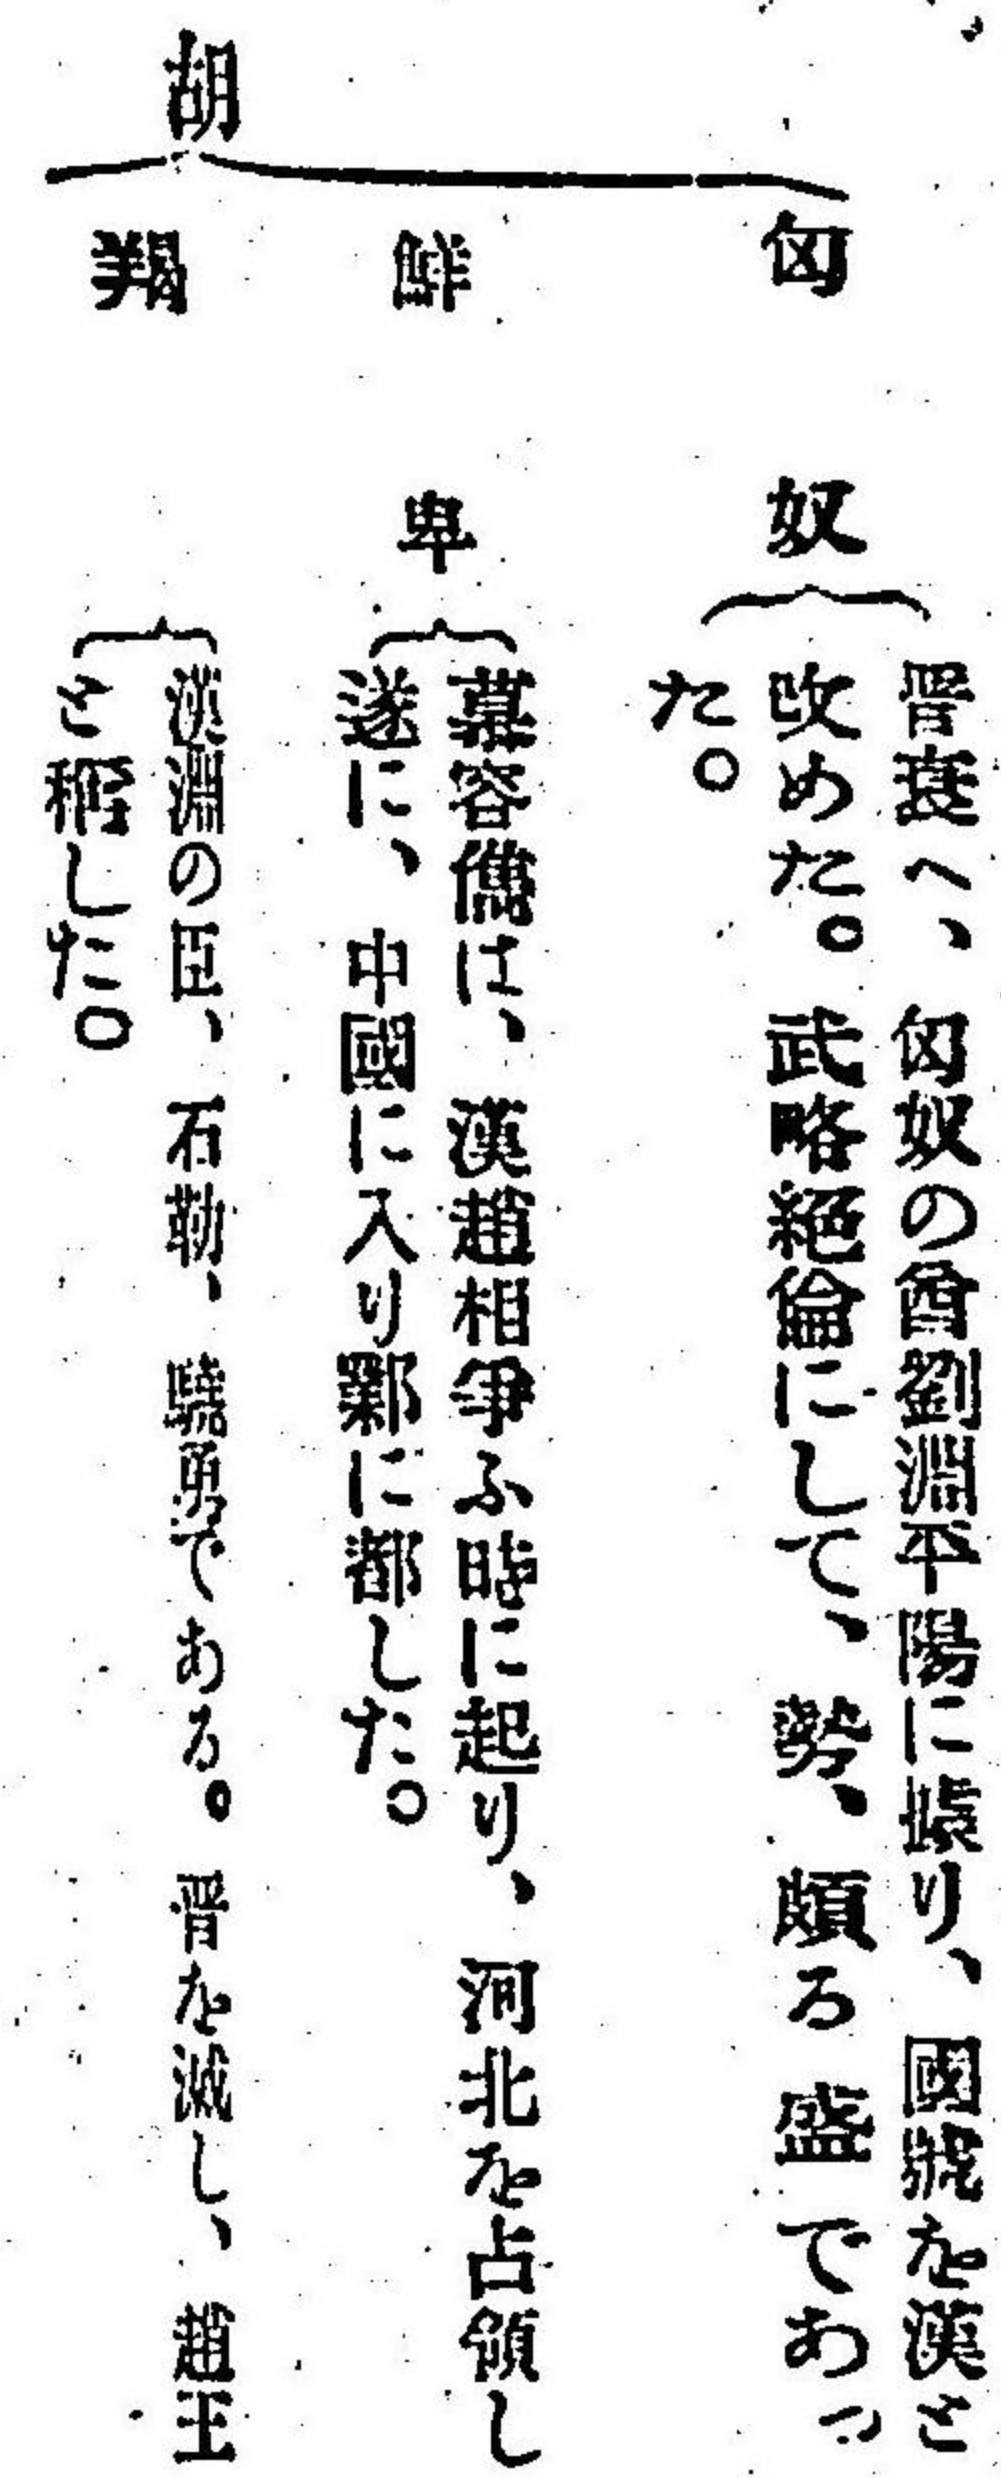 胡
匈奴
晋衰へ、匈奴の酋劉淵平陽に據り、國號を漢と
改めた。武略絕倫にして、勢、頗る盛であつ
た。
鮮卑
慕容儁は、漢趙相爭ふ時に起り、河北を占領し
遂に、中國に入り鄴に都した。
羯
漢淵の臣、石勒、驍勇である。晋を滅し、趙王
と稱した。